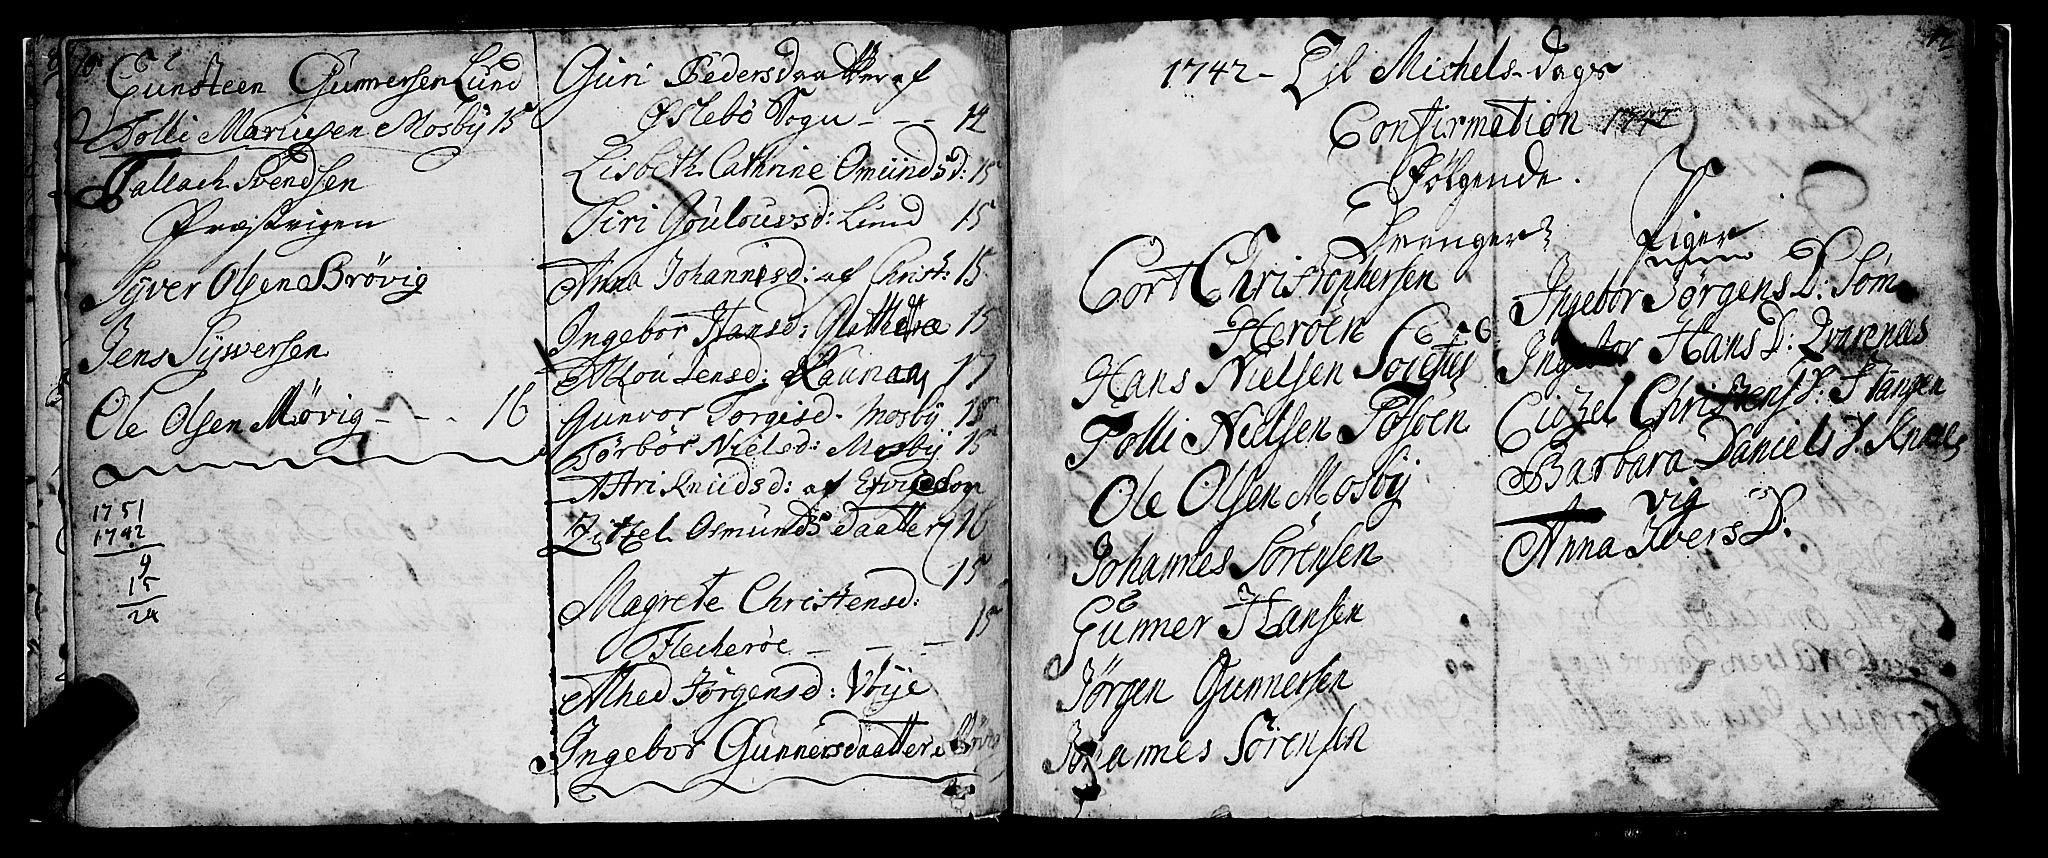 Gunsteen Gunnersen Lund
Tolli Mariusen Mosbÿ 15
Tallach Svendsen
Syver Olsen Brövig
Jens Sÿwersen
Ole Olsen Mövig - - - 16
1751
1742
9
15
24
Guri Pedersdaatter af
Øslebö Sogn - - - 14
Lisbeth Cathrine Omünds D: 15
Siri Goulouvsd: Lund 15
Anna Johannisd: af Christ: 15
Ingebor Hansd: 15
Jensd: 17
Gunvor Torgisd. Mosbÿ 18
Törbör Nielsd: Mosbÿ 15
Astri Knüdsd: af
Zittel Osmünds daatter 16
15
Magrete Christensd: 15
Flecheröe - - -
Alhed Jörgensd: Voije
Ingebor Gunnersdaatter
1742 - Til Michels-dags
Confirmation 1742
Følgende.
Drenger
Cort Christophersen
Heröen
Hans Nielsen
Tolli Nielsen
Ole Olsen Mosbÿ
Johannes Sörensen
Gunner Hansen
Jörgen Gunnersen
Johannes Sörensen
Piger
Ingebor Jörgens D: Söm
Ingebor Hans D:
Cidzel Christens D: Stangen
Barbara Daniels D. Knare
vig
Anna Ivers D: